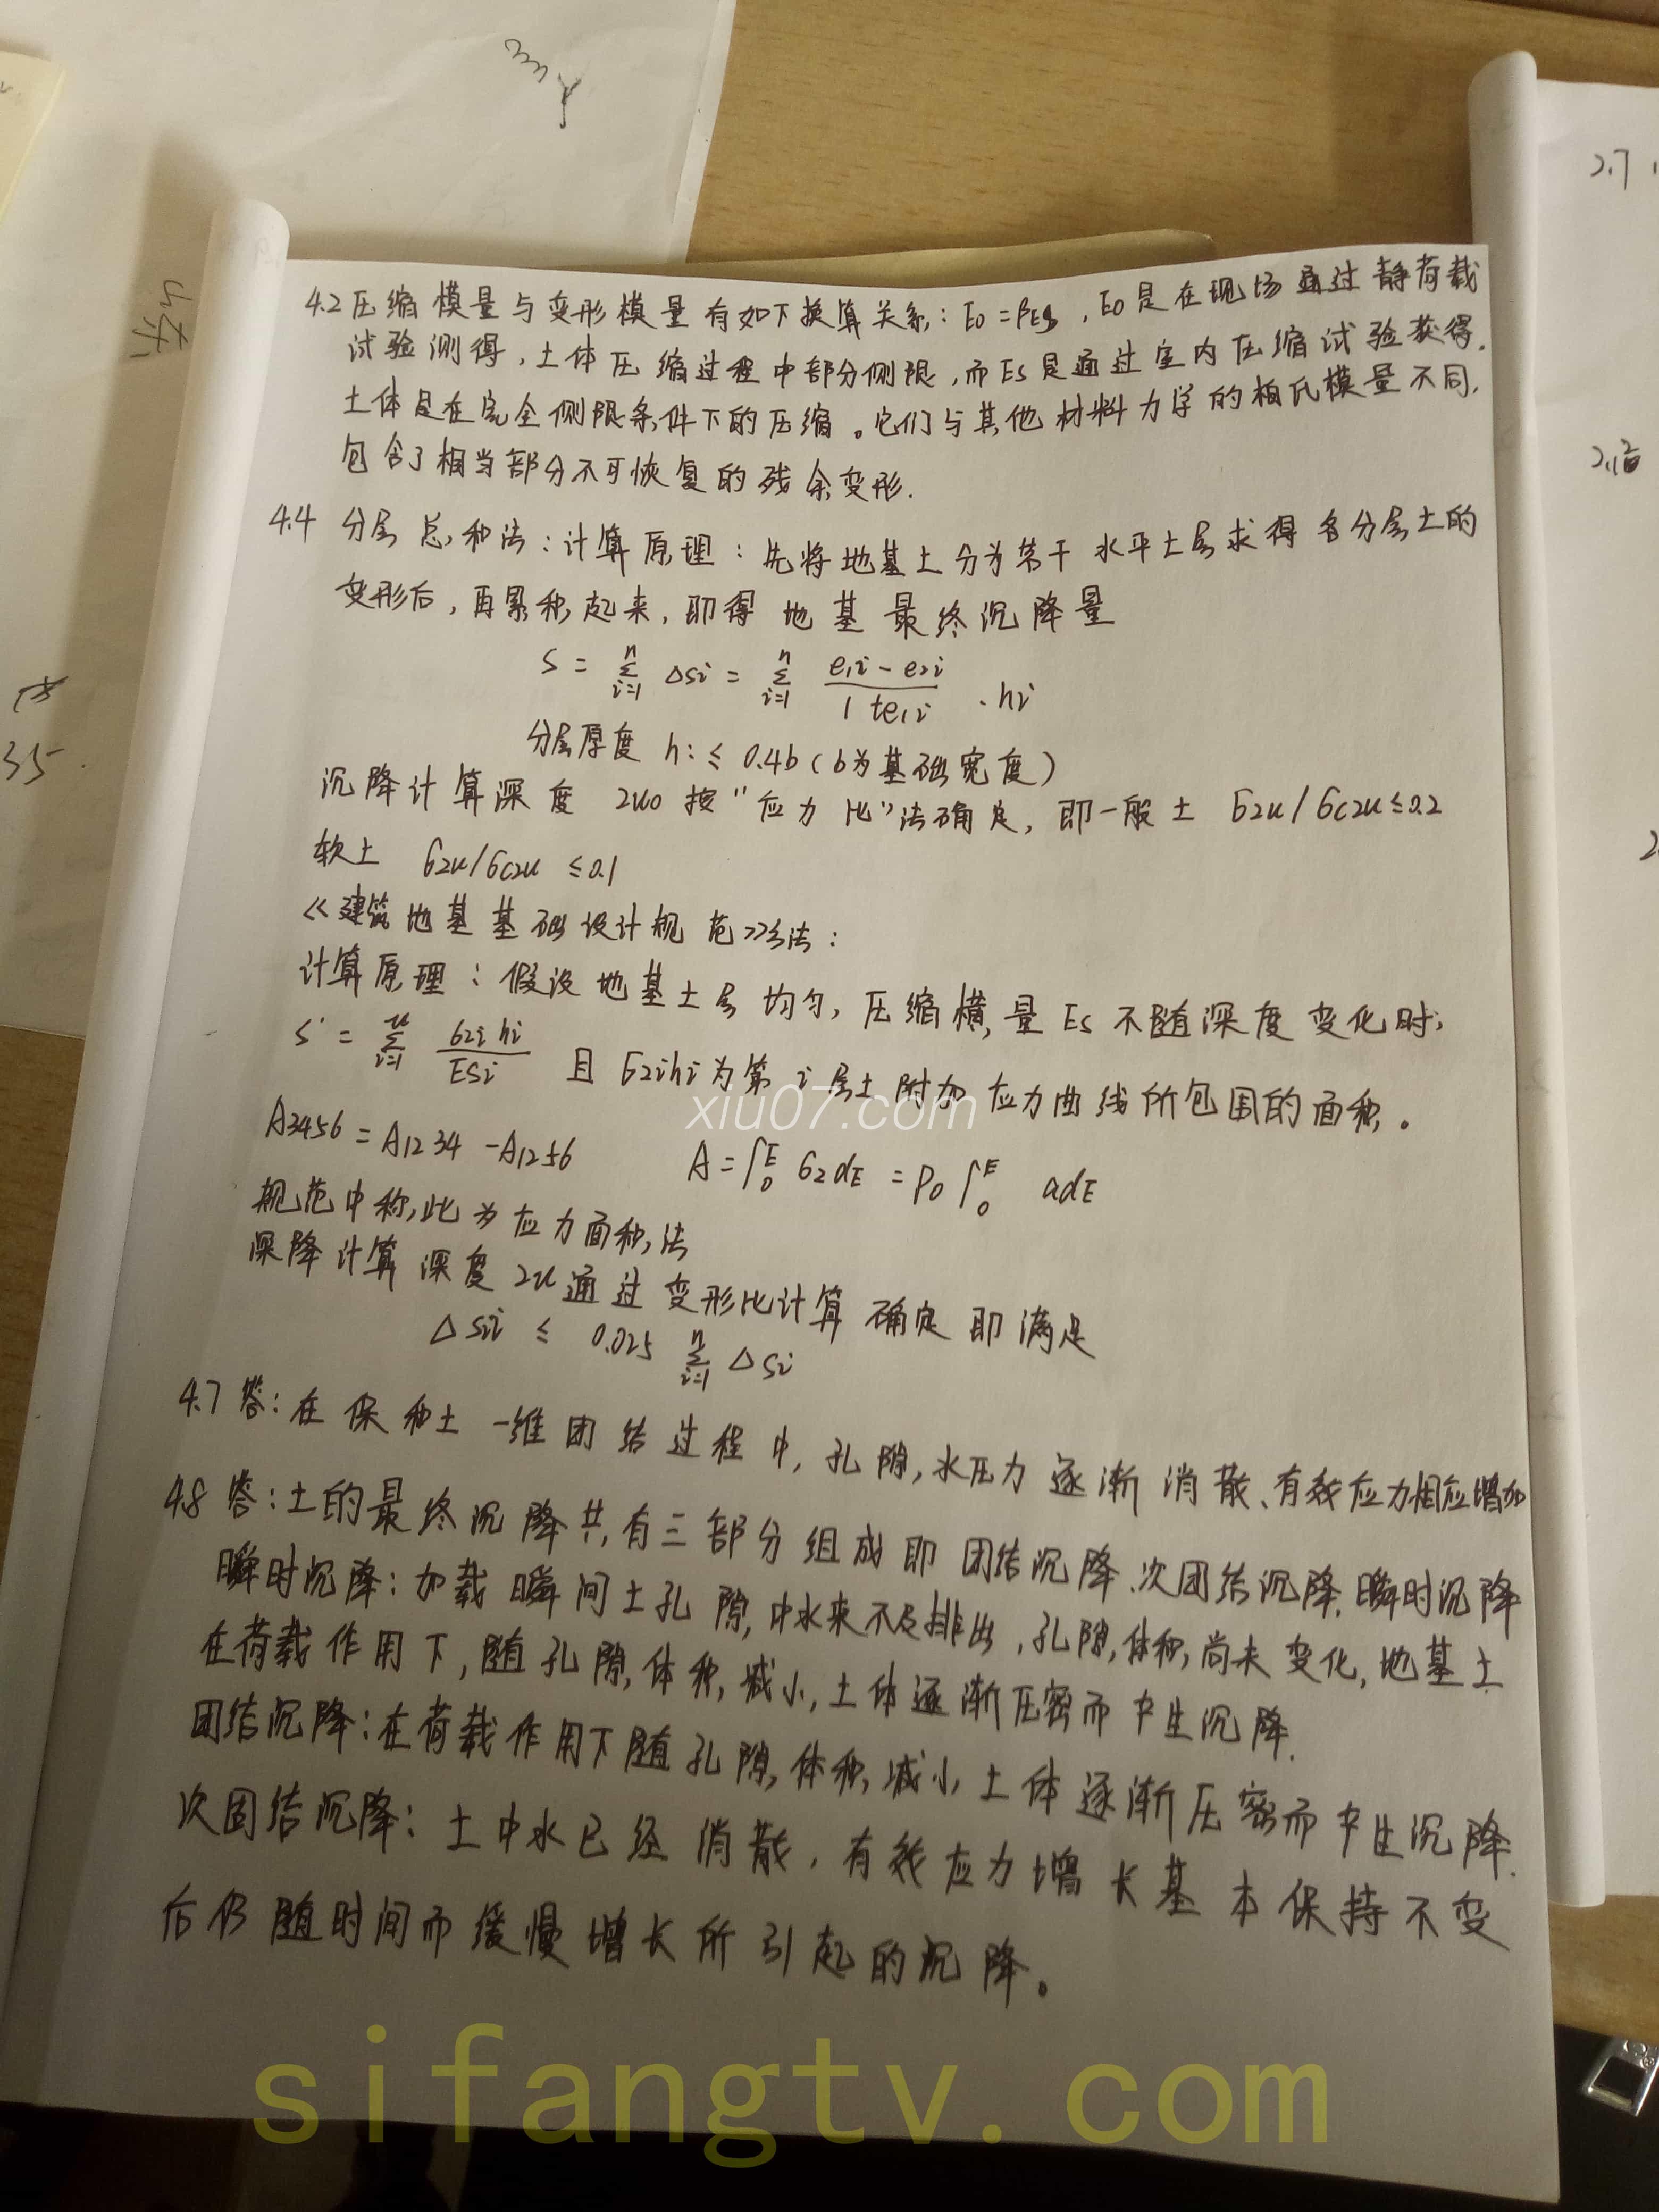 4.2 压缩模量与变形模量有如下换算关系: E0=βEs, E0是在现场通过静荷载
试验测得,土体压缩过程中部分侧限,而Es是通过室内压缩试验获得.
土体是在完全侧限条件下的压缩。它们与其他材料力学的柏氏模量不同,
包含了相当部分不可恢复的残余变形.
4.4 分层总和法:计算原理:先将地基土分为若干水平土层求得各分层土的
变形后,再累积起来,即得地基最终沉降量
S = n∑i=1 ΔSi = n∑i=1 (e1i - e2i)/(1+e1i) · hi
分层厚度 hi ≤ 0.4b (b为基础宽度)
沉降计算深度 2u0 按"应力比"法确定,即一般土 62u/6c2u≤0.2
软土 62u/6c2u ≤0.1
《建筑地基基础设计规范》法:
计算原理:假设地基土层均匀,压缩横量Es不随深度变化时,
S' = u∑i=1 62i hi/Esi 且62ihi为第i层土附加应力曲线所包围的面积。
xiu07.com
A3456 = A1234 - A1256 A=∫0E 62dE = P0∫0E adE
规范中称此为应力面积法
深降计算深度2u通过变形比计算确定即满足
Δsii ≤ 0.025 n∑i=1 ΔSi
4.7 答:在保和土一维团结过程中,孔隙水压力逐渐消散、有效应力相应增加
4.8 答:土的最终沉降共有三部分组成即团结沉降、次团结沉降,瞬时沉降
瞬时沉降:加载瞬间土孔隙中水来不及排出,孔隙体积尚未变化,地基土
在荷载作用下,随孔隙体积减小,土体逐渐压密而中生沉降.
团结沉降:在荷载作用下随孔隙体积减小土体逐渐压密而中生沉降.
次固结沉降:土中水已经消散,有效应力增长基本保持不变
后仍随时间而缓慢增长所引起的沉降。
sifangtv.com
2.7
35